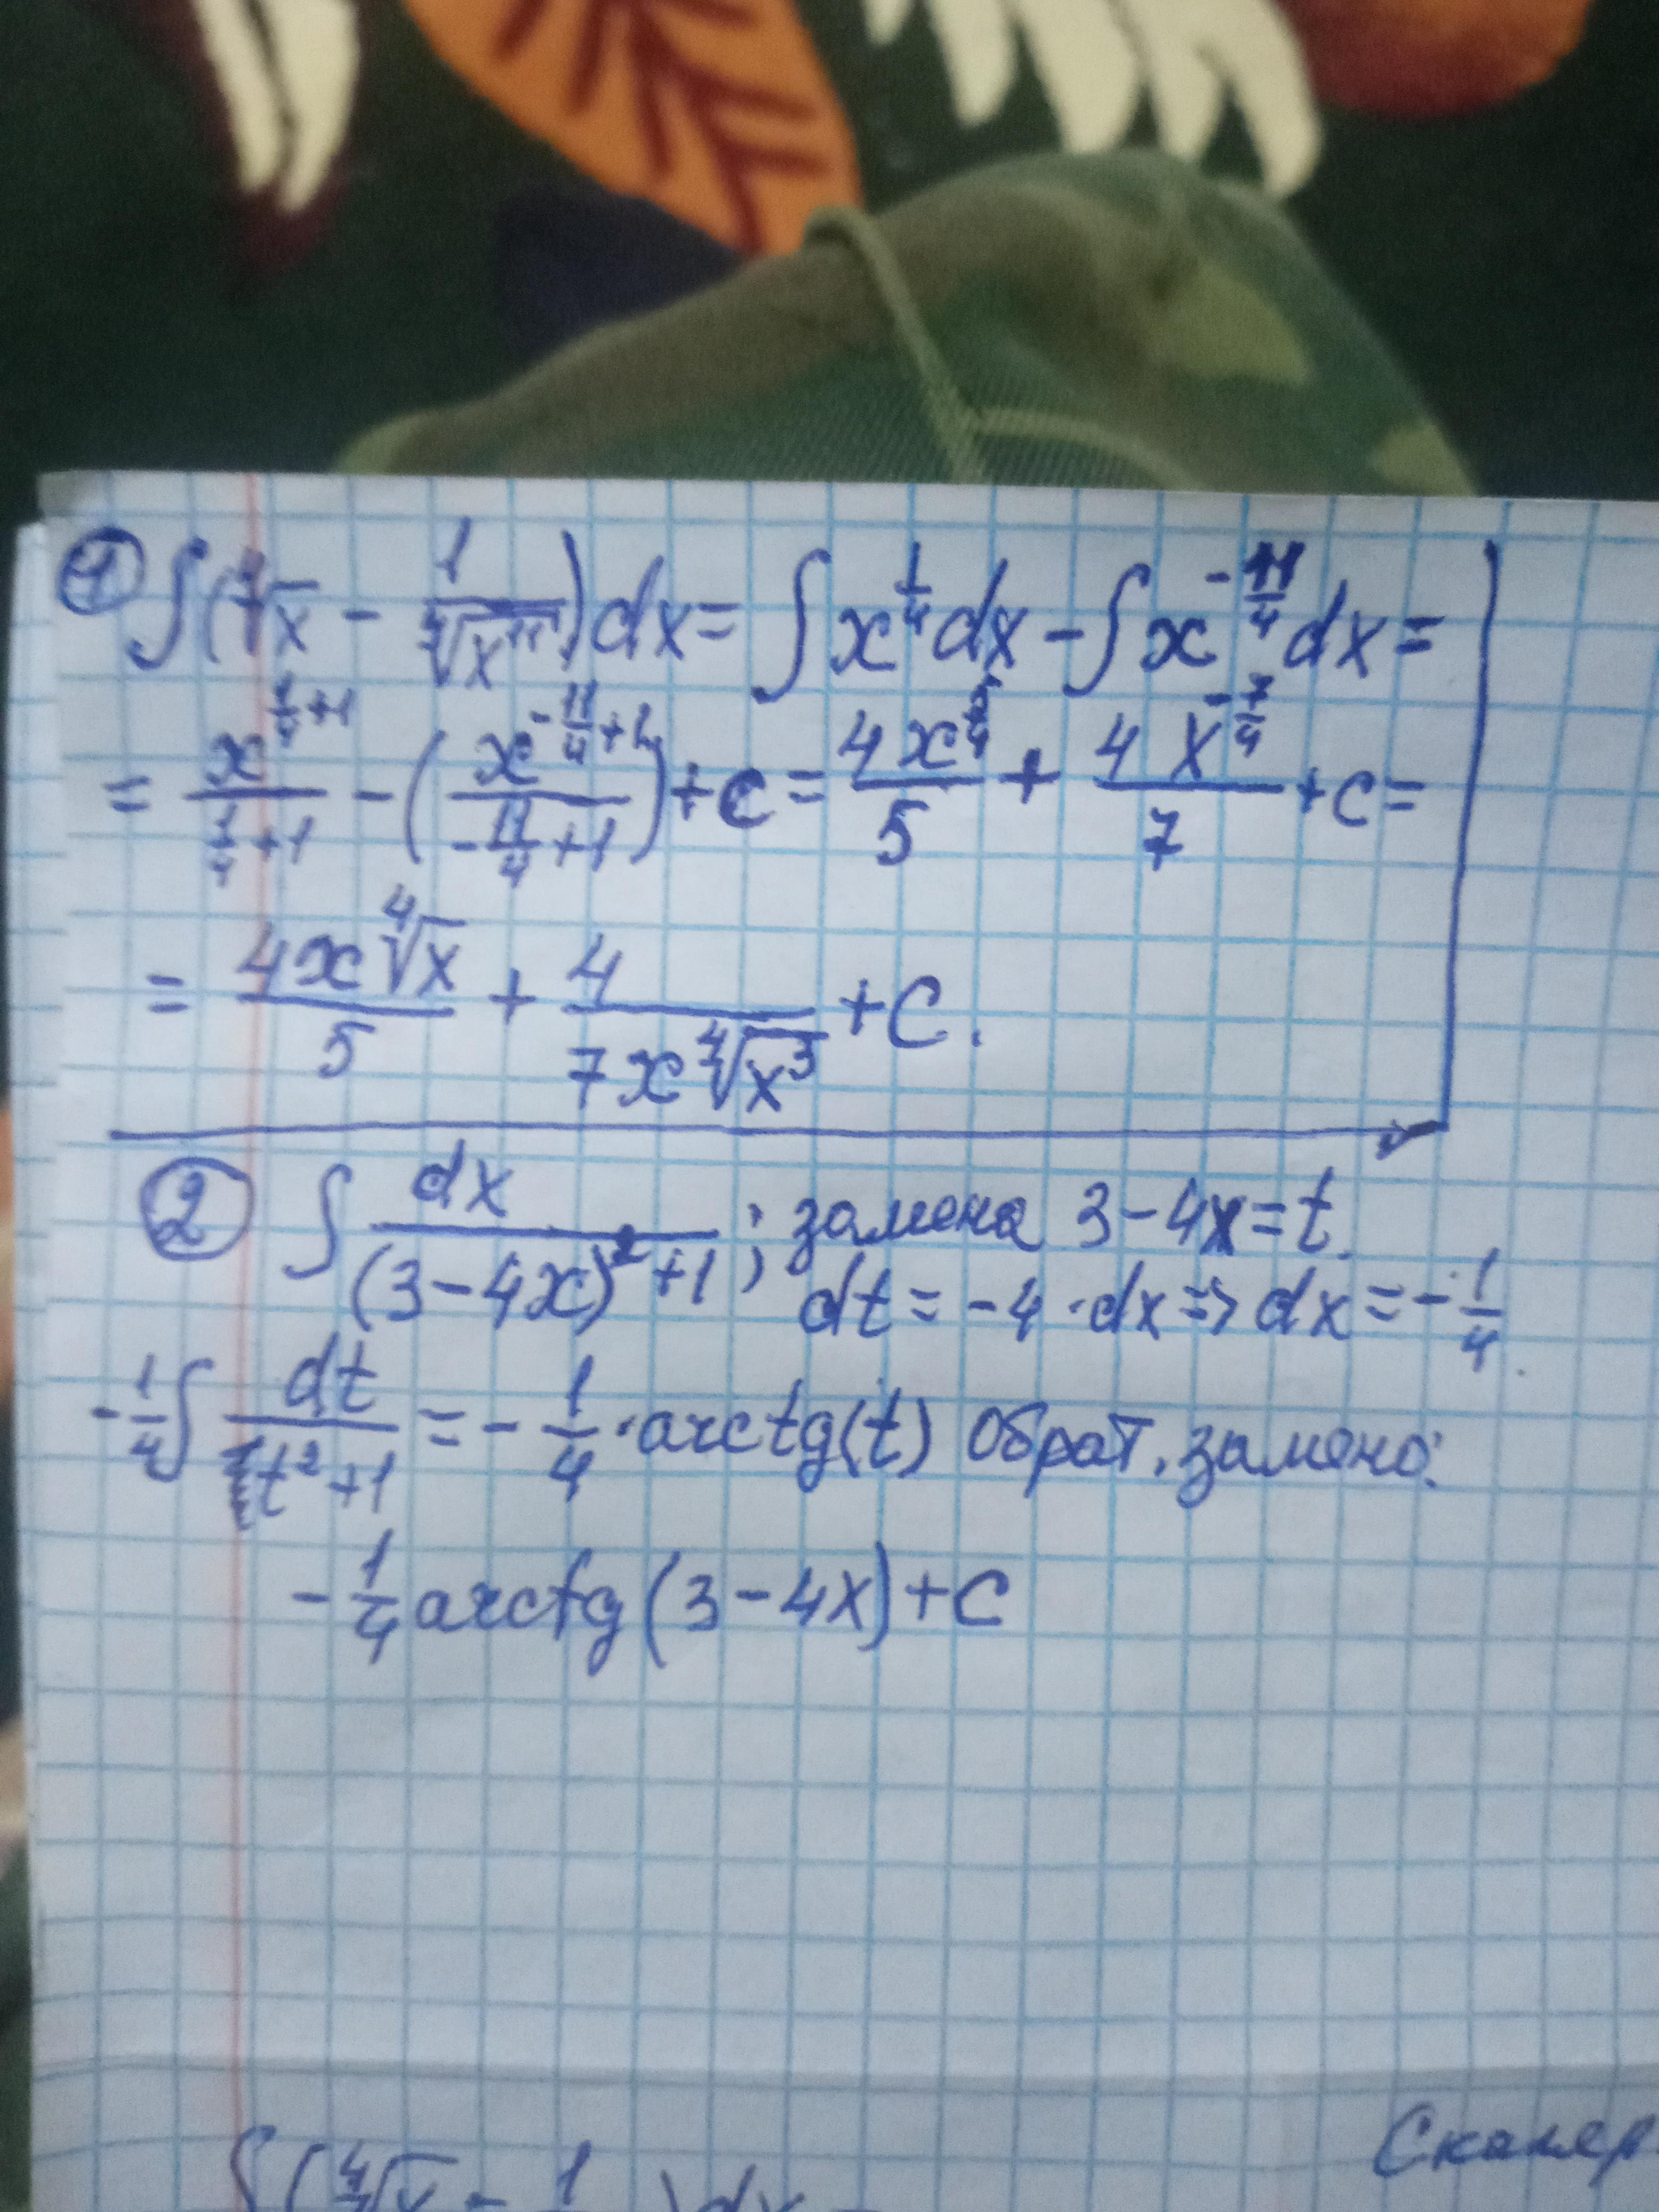 ① ∫(⁴√x − 1/⁴√x¹¹)dx = ∫x^(1/4)dx − ∫x^(−11/4)dx =
= x^(1/4+1)/(1/4+1) − (x^(−11/4+1)/(−11/4+1)) + c = 4x^(5/4)/5 + 4x^(−7/4)/7 + c =
= 4x⁴√x/5 + 4/(7x⁴√x³) + C.
② ∫dx/((3−4x)²+1); замена 3−4x=t.
dt = −4·dx => dx = −1/4.
−1/4∫dt/(t²+1) = −1/4·arctg(t) Обрат. замена:
−1/4 arctg(3−4x)+C
Сканер
∫(⁴√x − 1/ )dx =